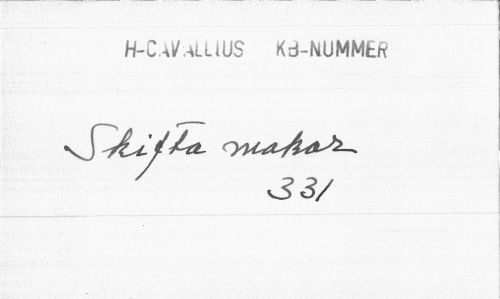 H-CAVALLIUS KB-NUMMER
Skifta makar
331